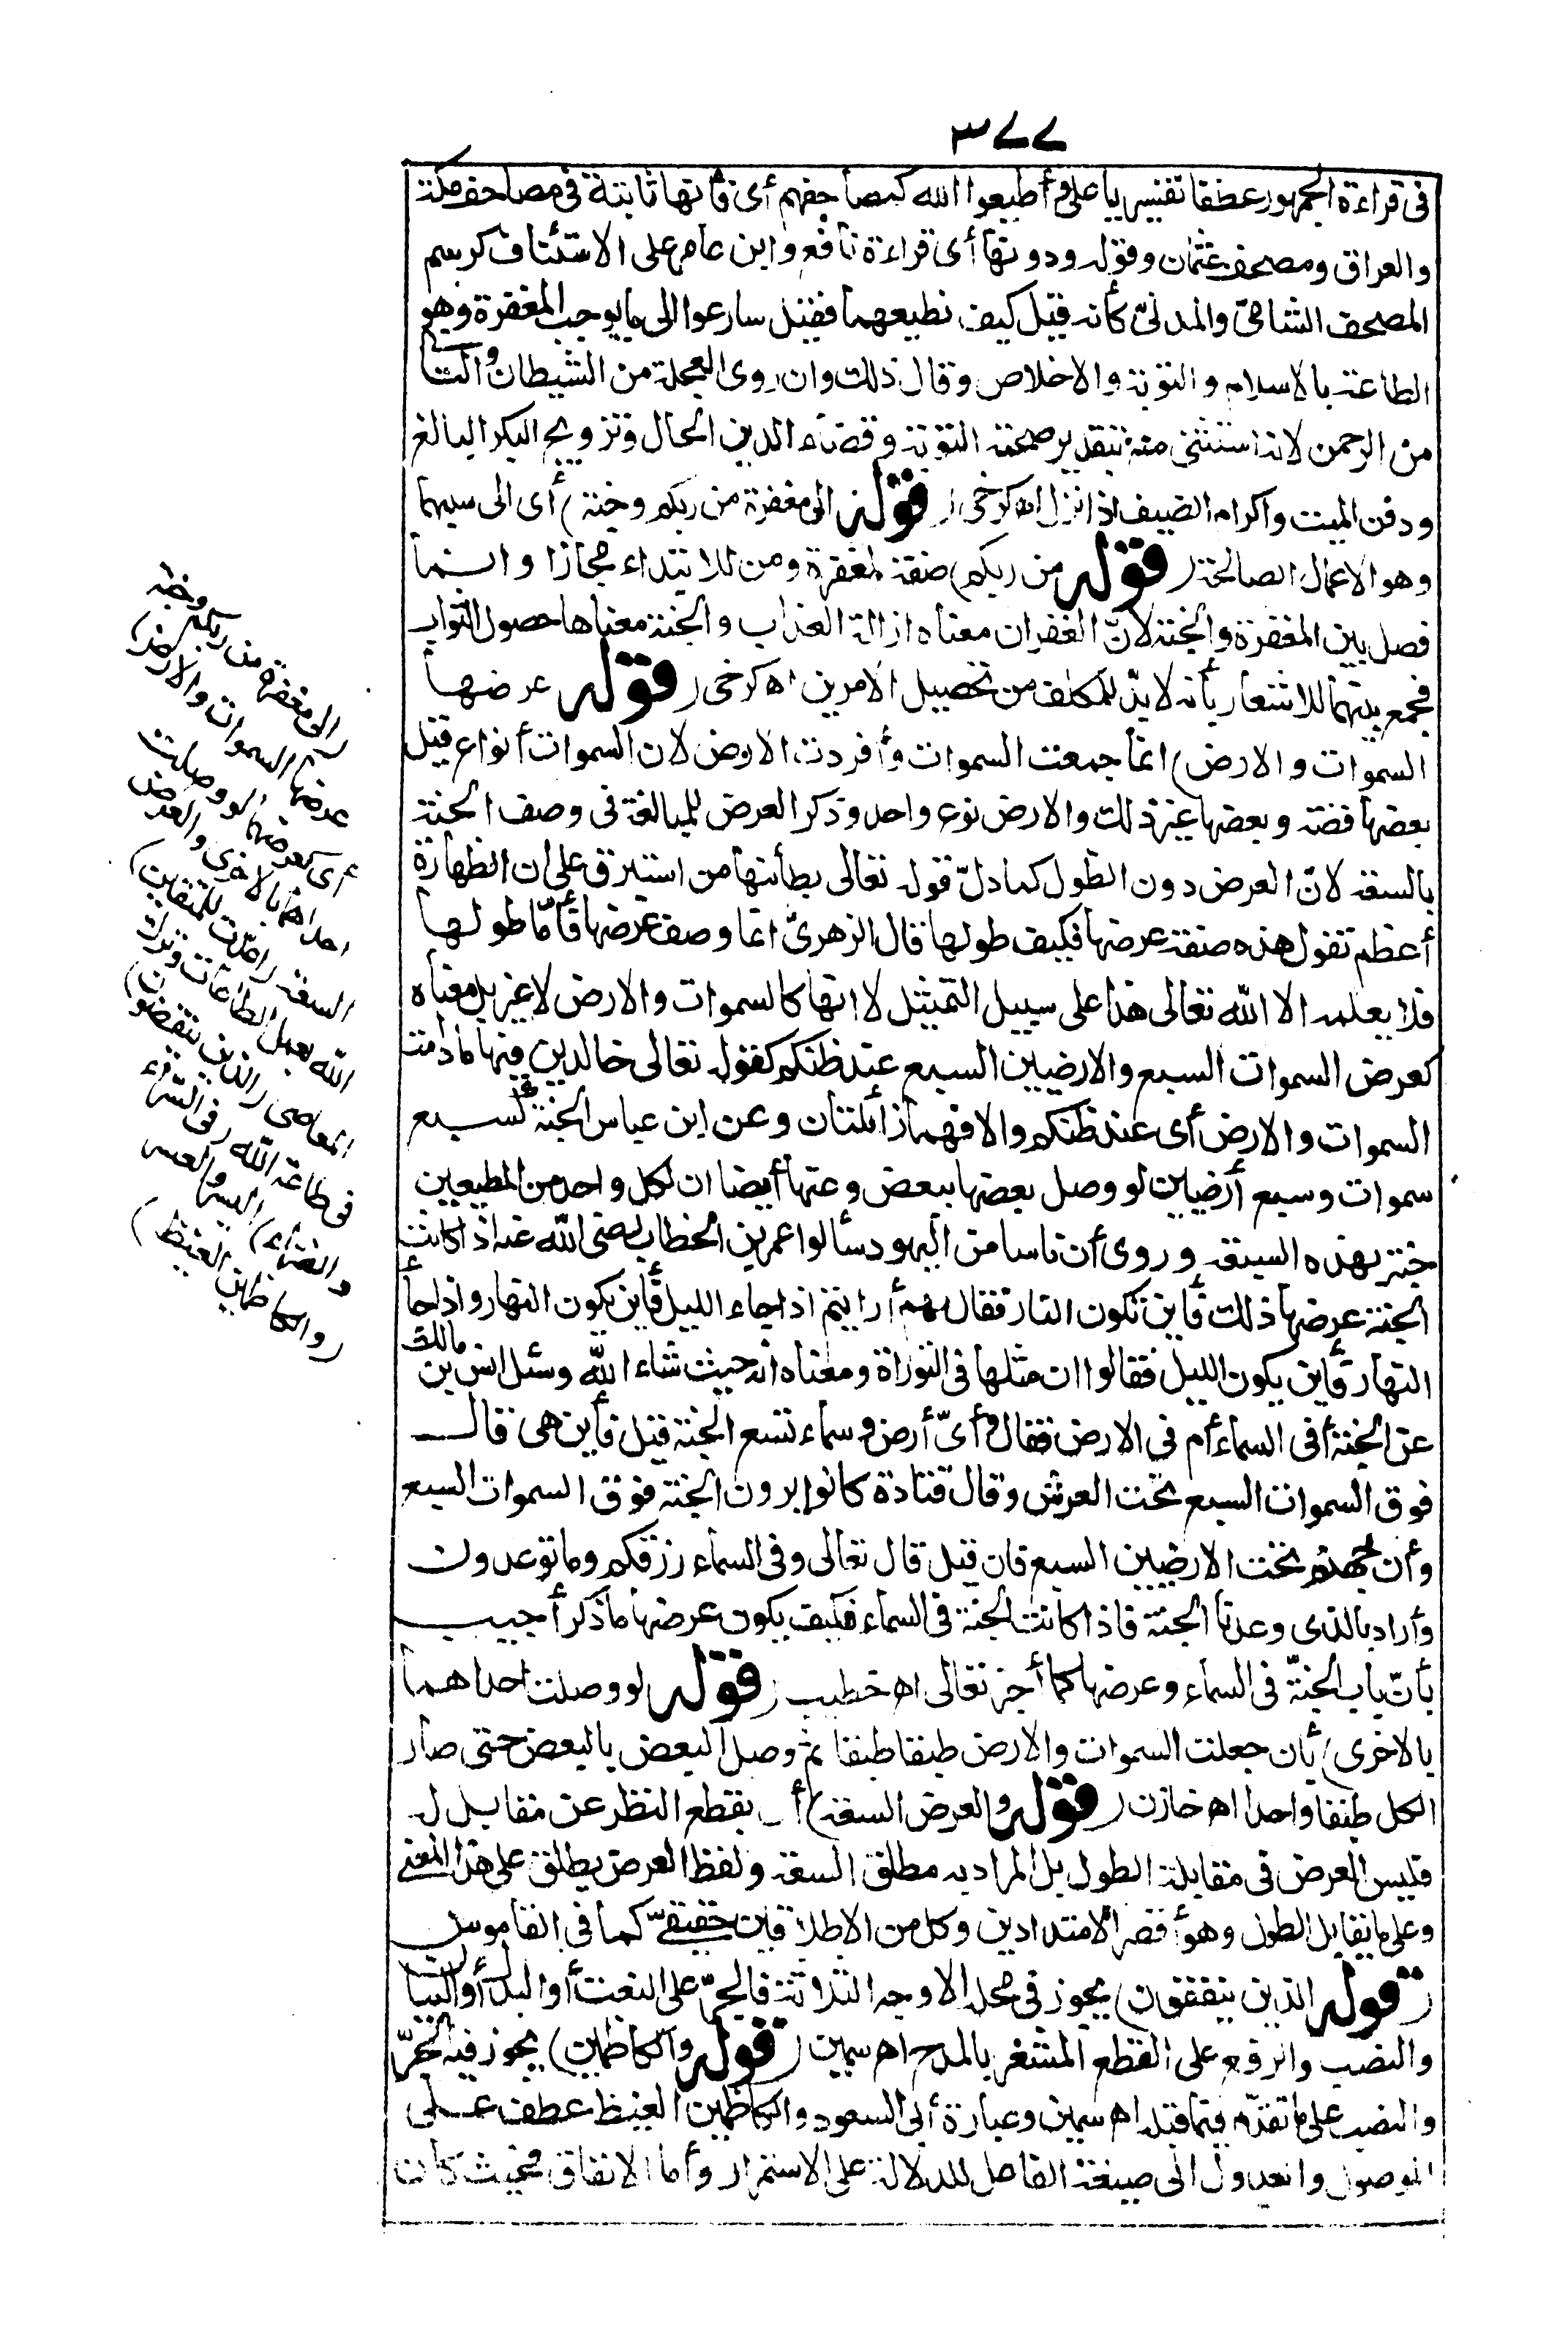 ٣٧٧
في قراءة الجمهور عطفا تفسيريا على وأطيعوا الله كمصاحفهم أى فانها ثابتة في مصاحف مكة
والعراق ومصحف عثمان وقوله ودونها أى قراءة نافع وابن عامر على الاستئناف كرسم
المصحف الشامىّ والمدنىّ كأنه قيل كيف نطيعهما فقيل سارعوا الى ما يوجب المغفرة وهو
الطاعة بالاسلام والتوبة والاخلاص وقال ذلك وان روى العجلة من الشيطان والتأنى
من الرحمن لانه استثنى منه بتقدير صحته التوبة وقضاء الدين الحال وتزويج البكر البالغ
ودفن الميت واكرام الضيف اذا نزل اه كرخى (قوله الى مغفرة من ربكم وجنة) أى الى سببهما
وهو الاعمال الصالحة (قوله من ربكم) صفة لمغفرة ومن للابتداء مجازا وانما
فصل بين المغفرة والجنة لانّ الغفران معناه ازالة العذاب والجنة معناها حصول الثواب
فجمع بينهما للاشعار بأنه لابدّ للمكلف من تحصيل الامرين اه كرخى (قوله عرضها
السموات والارض) انما جمعت السموات وأفردت الارض لان السموات أنواع قيل
بعضها فضة وبعضها غير ذلك والارض نوع واحد وذكر العرض للمبالغة فى وصف الجنة
بالسعة لانّ العرض دون الطول كما دلّ قوله تعالى بطائنها من استبرق على ان الظهارة
أعظم تقول هذه صفة عرضها فكيف طولها قال الزهرىّ انما وصف عرضها فأمّا طولها
فلا يعلمه الا الله تعالى هذا على سبيل التمثيل لا انها كالسموات والارض لا غير بل معناه
كعرض السموات السبع والارضين السبع عند ظنكم كقوله تعالى خالدين فيها ما دامت
السموات والارض أى عند ظنكم والا فهما زائلتان وعن ابن عباس الجنة كسبع
سموات وسبع أرضين لو وصل بعضها ببعض وعنه أيضا ان لكل واحد من المطيعين
جنة بهذه السعة وروى أن ناسا من اليهود سألوا عمر بن الخطاب رضى الله عنه اذا كانت
الجنة عرضها ذلك فأين تكون النار فقال لهم أرأيتم اذا جاء الليل فأين يكون النهار واذا جاء
النهار فأين يكون الليل فقالوا ان مثلها فى التوراة ومعناه انه حيث شاء الله وسئل انس بن مالك
عن الجنة أفى السماء أم فى الارض فقال وأىّ أرض وسماء تسع الجنة قيل فأين هى قال
فوق السموات السبع تحت العرش وقال قتادة كانوا يرون الجنة فوق السموات السبع
وأن جهنم تحت الارضين السبع فان قيل قال تعالى وفى السماء رزقكم وما توعدون
وأراد بالذى وعدنا الجنة فاذا كانت الجنة فى السماء فكيف يكون عرضها ما ذكر أجيب
بأنّ باب الجنة فى السماء وعرضها كما أخبر تعالى اه خطيب (قوله لو وصلت احداهما
بالاخرى) بأن جعلت السموات والارض طبقا طبقا ثم وصل البعض بالبعض حتى صار
الكل طبقا واحدا اه خازن (قوله والعرض السعة) أى بقطع النظر عن مقابل له
فليس العرض فى مقابلة الطول بل المراد به مطلق السعة ولفظ العرض يطلق على هذا المعنى
وعلى ما يقابل الطول وهو أقصر الامتدادين وكل من الاطلاقين حقيقىّ كما فى القاموس
(قوله الذين ينفقون) يجوز فى محله الاوجه الثلاثة فالجرّ على النعت أو البدل أو البيان
والنصب والرفع على القطع المشعر بالمدح اه سمين (قوله والكاظمين) يجوز فيه الجرّ
والنصب على ما تقدّم فيما قبله اه سمين وعبارة أبى السعود والكاظمين الغيظ عطف على
الموصول والعدول الى صيغة الفاعل للدلالة على الاستمرار وأما الانفاق فحيث كان
الى مغفرة من ربكم وجنة
عرضها السموات والارض)
أى كعرضهما لو وصلت
احداهما بالاخرى والعرض
السعة (أعدّت للمتقين)
الله بعمل الطاعات وترك
المعاصى (الذين ينفقون)
فى طاعة الله (فى السرّاء
والضراء) اليسر والعسر
(والكاظمين الغيظ)